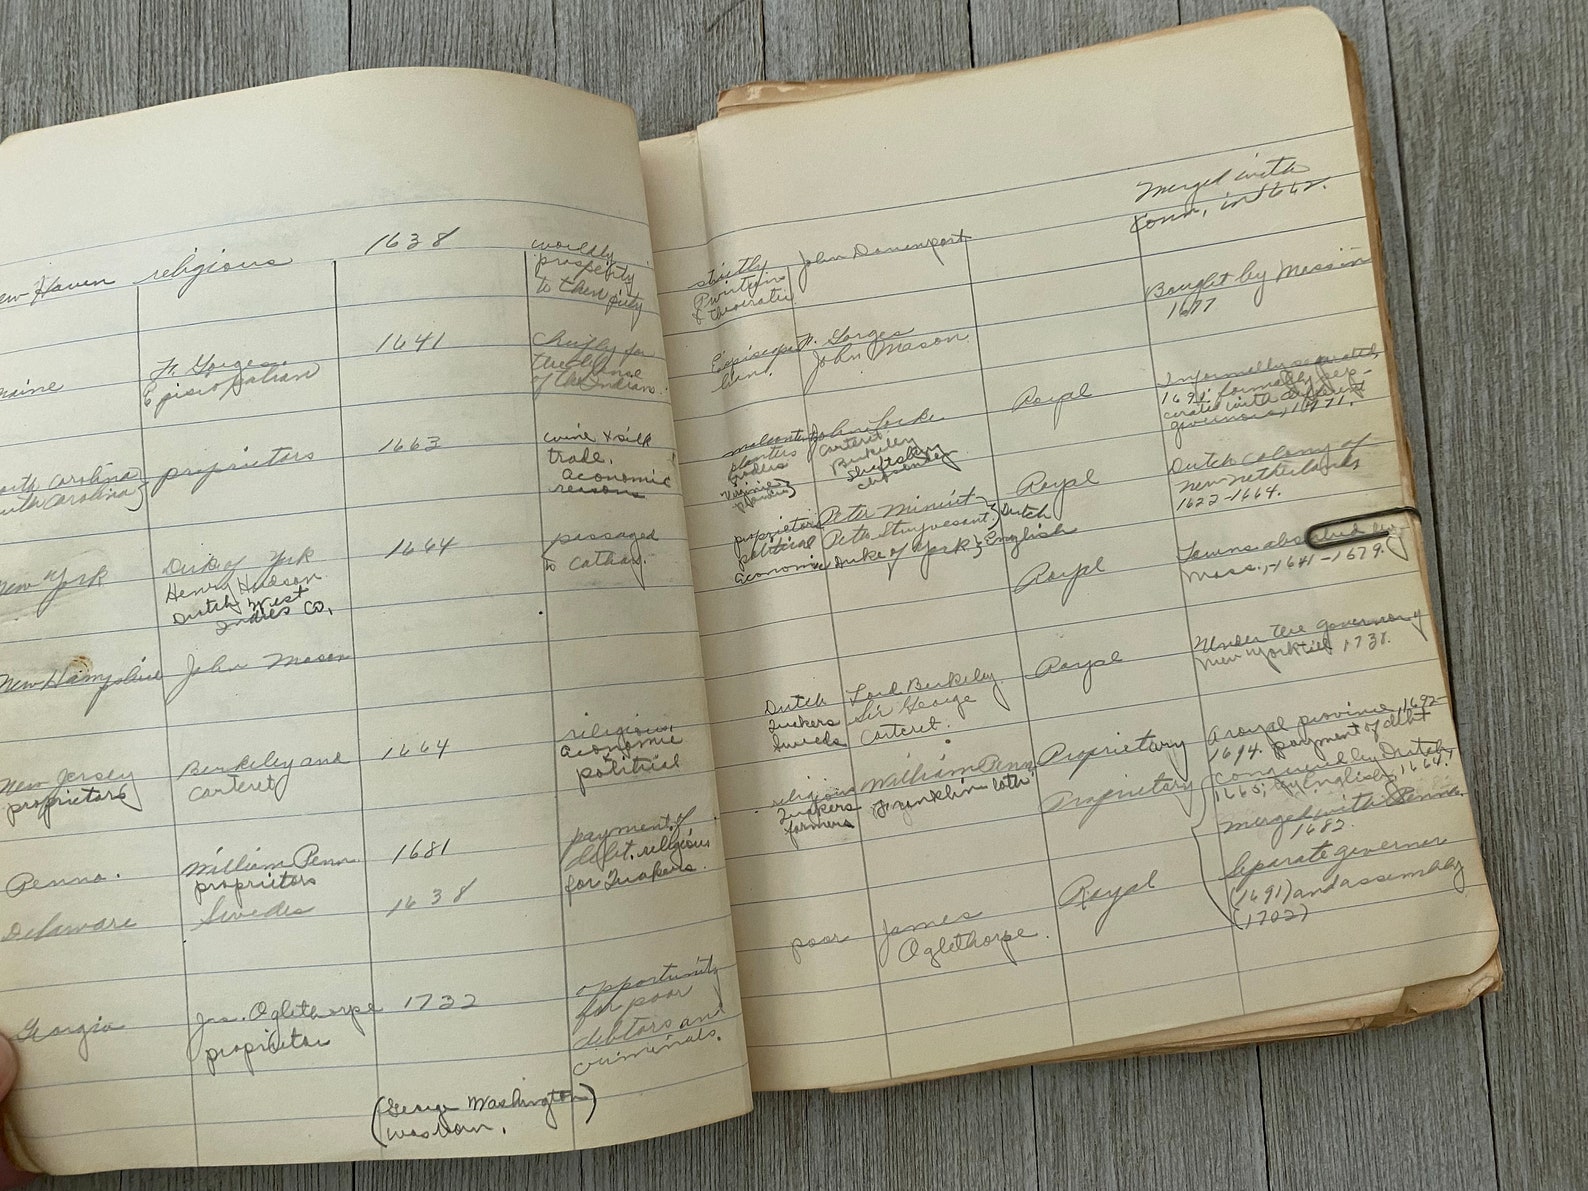 New Haven religious 1638 worldly
prosperity
to then piety
Maine Fr. Gorges 1641 Chiefly for
Episcopalian the defense
of the Indians.
North Carolina proprietors 1663 wine & silk
South Carolina} trade.
Economic
reasons
New York Duke of York 1664 passaged
Henry Hudson to Cathay.
Dutch West
Indies Co.
New Hampshire John Mason
New Jersey Berkeley and 1664 religious
proprietors Carteret economic
political
Penna. William Penn 1681 payment of
proprietors debt, religious
for Quakers.
Delaware Swedes 1638
Georgia Jas. Oglethorpe 1732 opportunity
proprietor for poor
debtors and
criminals.
(George Washington
was born.)
Merged with
Conn. in 1662.
strictly John Davenport
Puritan
& theocratic
Bought by Mass in
1677
Episcopal F. Gorges
ians. John Mason
malcontents John Locke Royal Informally separated
planters Carteret 1691; formally sep-
traders Berkeley arated with different
Virginia Shaftsbury governors, 1771.
proprietors Peter Minuit Royal Dutch Colony of
political Peter Stuyvesant} Dutch New Netherlands
economic Duke of York} English 1622-1664.
Royal Towns absorbed by
Mass., 1641-1679.
Dutch Lord Berkeley Royal Under the governor of
Quakers Sir George New York till 1731.
Swedes Carteret.
religious William Penn Proprietary A royal province, 1692-
Quakers Franklin later 1694. payment of debt
farmers Proprietary conquered by Dutch
1665; by English, 1664.
Merged with Penna.
1682.
Separate governor
(1691) and assembly
(1702)
poor James Royal
Oglethorpe.